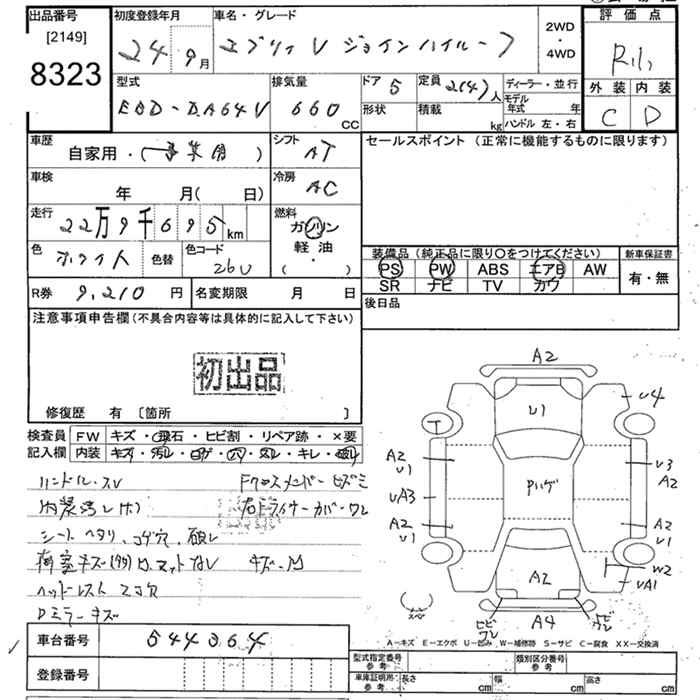 出品番号
[2149]
8323
初度登録年月
24 9月
車名・グレード
エブリィ V ジョインハイルーフ
2WD
・
4WD
評価点
外装 内装
C D
型式
EBD-DA64V
排気量
660 CC
ドア 5
形状
定員 2(4)人
積載 kg
ディーラー・並行
モデル年式 年
ハンドル 左・右
車歴
自家用・(事業用)
シフト
AT
セールスポイント (正常に機能するものに限ります)
車検
年 月( 日)
冷房
AC
走行
22万9千695km
燃料
ガソリン
軽油
( ・ )
色
ホワイト
色替
色コード
26U
装備品(純正品に限り〇をつけてください)
PS PW ABS エアB AW
SR ナビ TV カワ
新車保証書
有・無
R券 9,210円
名変期限 月 日
後日品
注意事項申告欄(不具合内容等は具体的に記入して下さい)
初出品
修復歴 有 〔箇所 〕
検査員
記入欄
FW キズ・飛石・ヒビ割・リペア跡・×要
内装 キズ・汚レ・コゲ・穴・スレ・キレ・破レ
ハンドル・スレ
Fクロスメンバーヒズミ
内装汚レ(ホ)
右ドライナーカバーワレ
シートヘタリ、コゲ穴、破レ
荷室キズ(多)ワ、マットナシ
ヘッドレスト スコ欠
Dミラーキズ
A2
U1
U4
T
A2
U1
U3
A2
UA3
ハゲ
A2
U1
A2
U1
A2
W2
UA1
スペア
ヒビ
ワレ
A4
ヒビ
ワレ
A-キズ E-エクボ U-凹み W-補修跡 S-サビ C-腐食 XX-交換済
車台番号
544364
登録番号
型式指定番号
参考
類別区分番号
参考
車庫証明所
参考
長さ cm
幅 cm
高さ cm